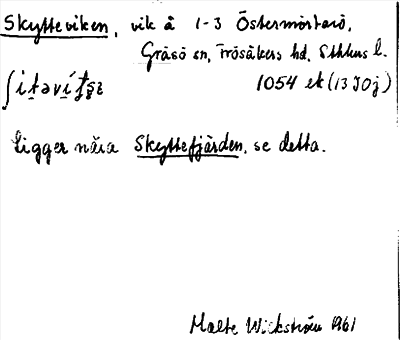 Skytteviken, vik å 1-3 Östermörtarö,
Gräsö sn, Frösåkers hd, Sthlms l.
1054 ek (13 I 0 j)
Ligger nära Skyttefjärden, se detta.
Malte Wickström 1961